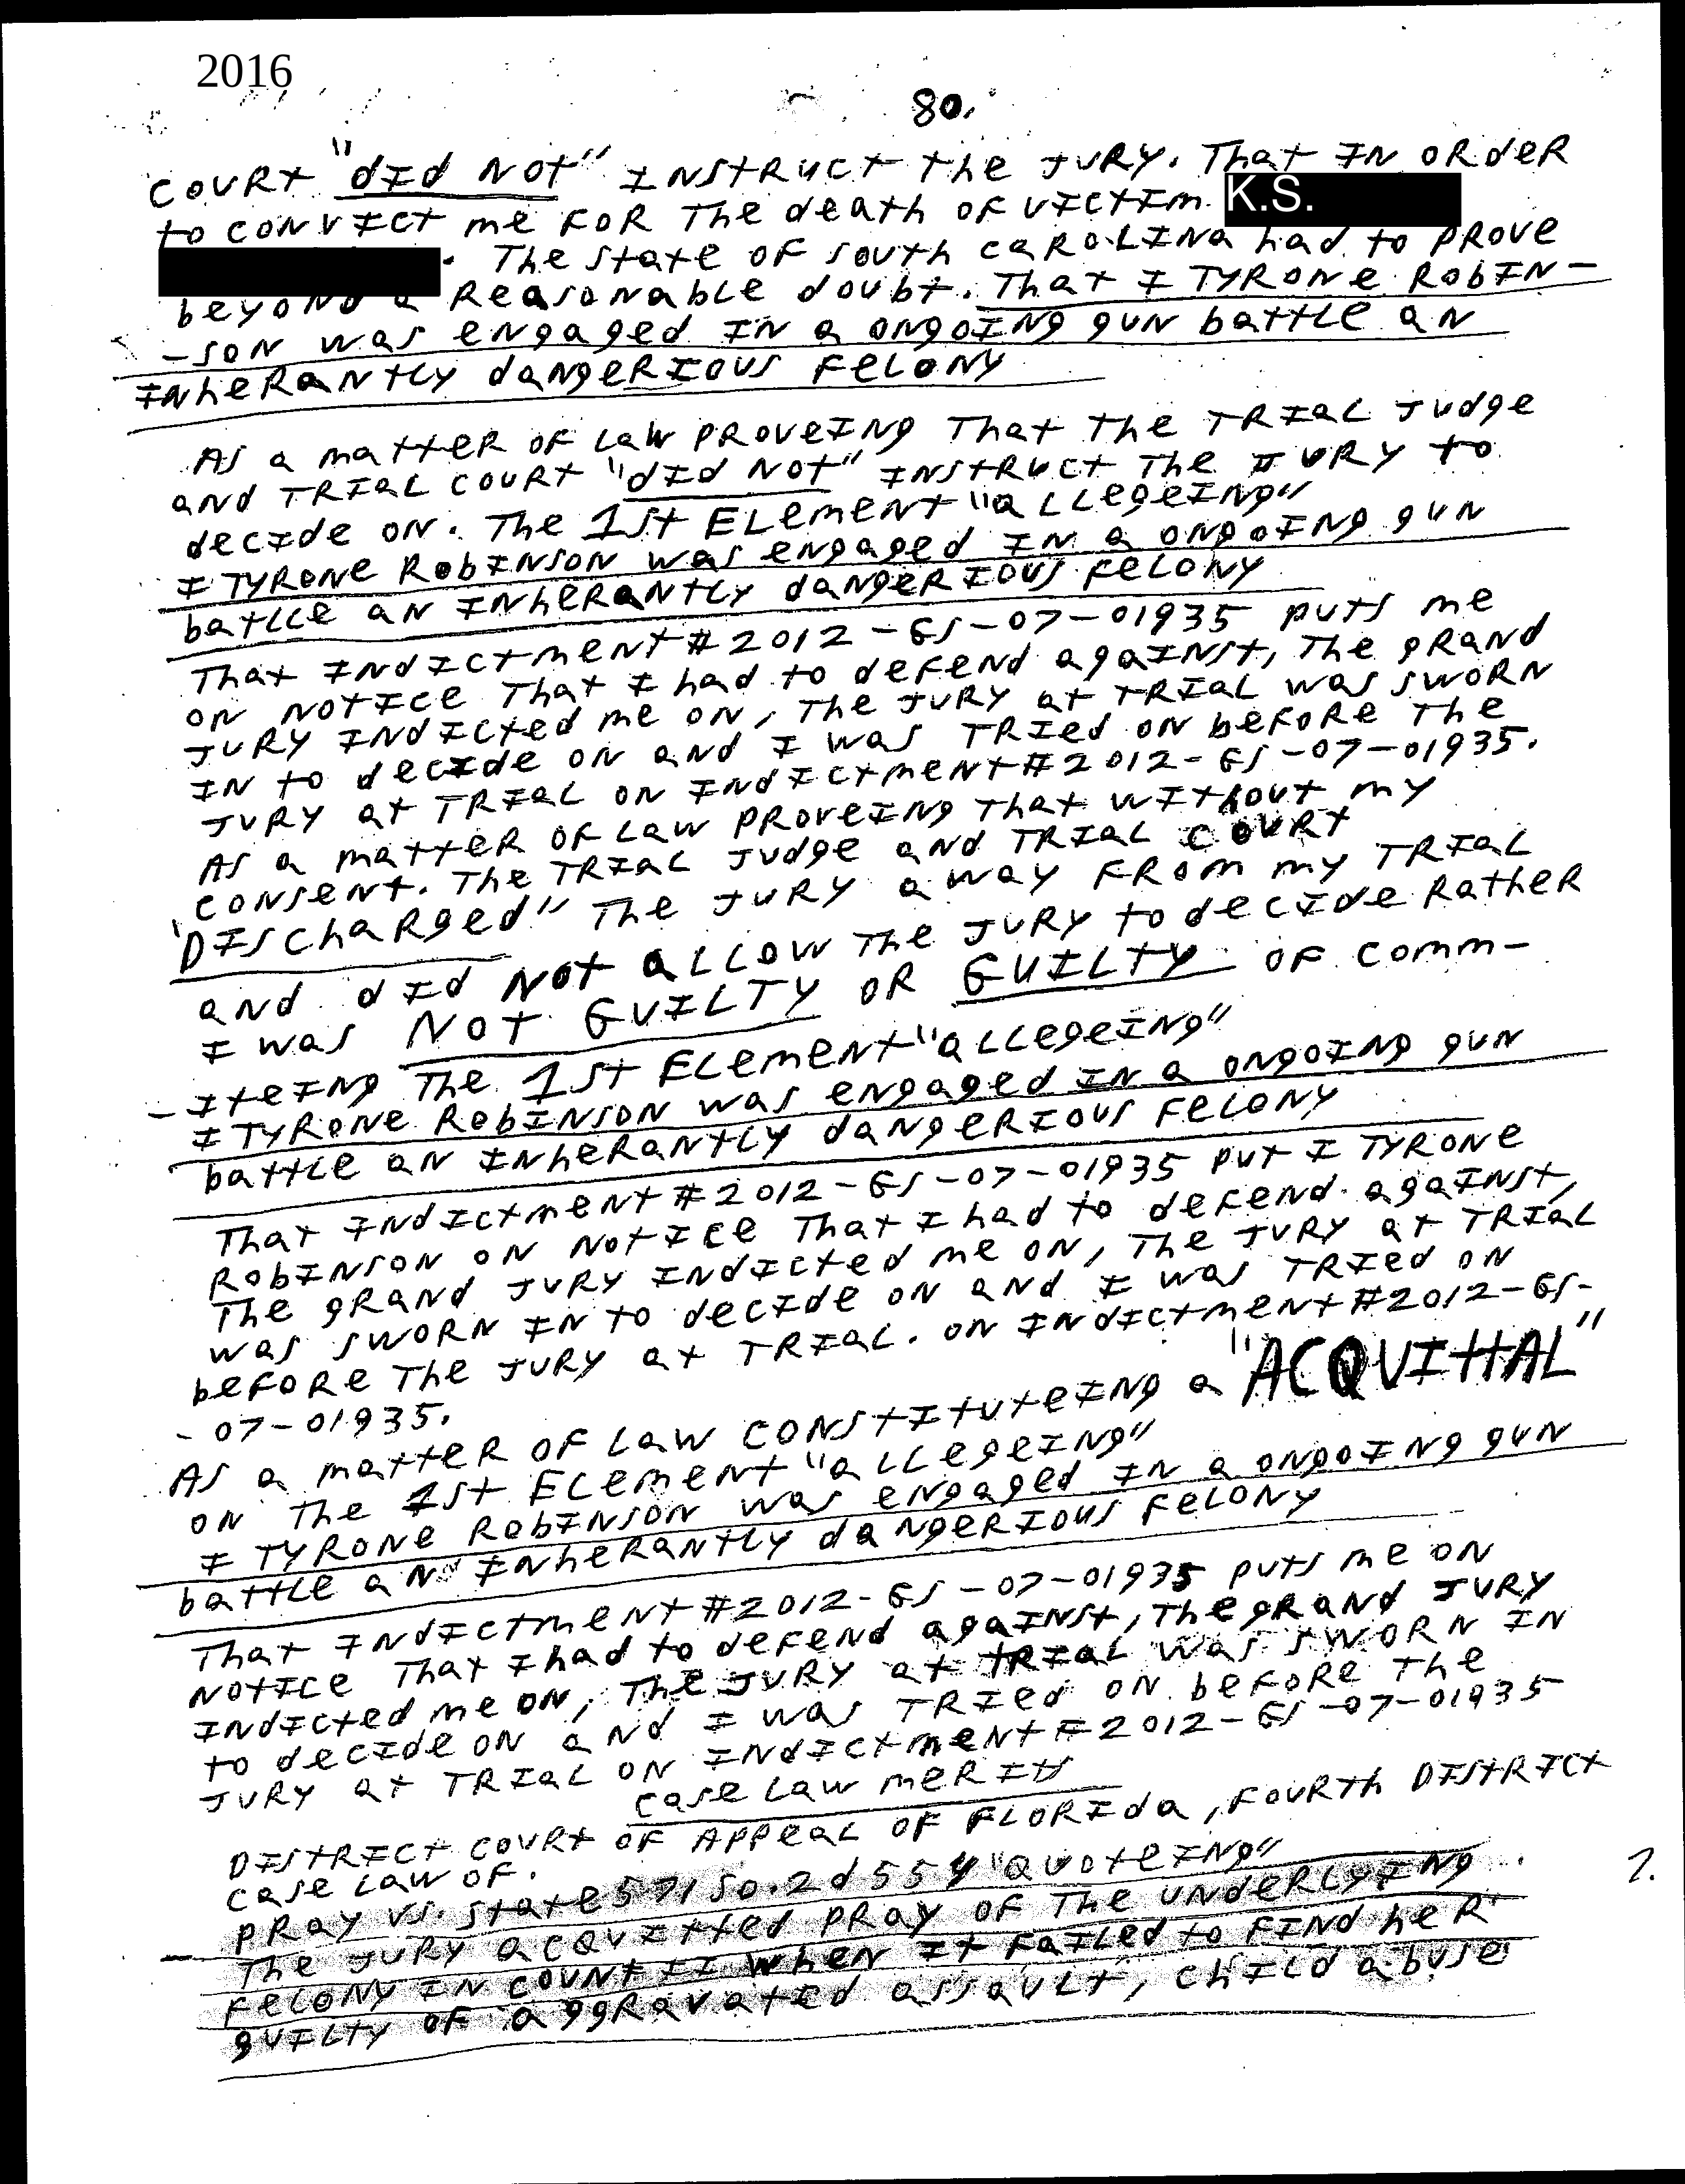 2016
80.
COURt "dId NOt" INStRuct the JURY. That IN ORdeR
to CONVIct me FOR The death OF VIctIm K.S.
. The State OF South CAROLINA had to PROVE
beyond a ReasONabLe doubt. That I TYRONE RobIN-
-SON was engaged IN a ONgOINg guN battLe aN
INheRaNtLy daNgeRIOUS FeLONY
AS a matteR OF Law PROVeINg That the TRIaL Judge
aNd TRIaL COURt "dId NOt" INStRuct The JURY to
decIde ON. The 1St ELemeNt "aLLegeINg"
I TYRONE RobINSON was eNgaged IN a ONgOINg guN
batLLe aN INheRaNtLy daNgeRIOUS FeLONY
That INdIctmeNt #2012-GS-07-01935 PutS me
ON NOtIce That I had to deFeNd agaINSt, The gRaNd
JURY INdIcted me ON, The JURY at TRIaL was SWORN
IN to decIde ON aNd I was TRIed ON beFORe The
JURY at TRIaL ON INdIctmeNt #2012-GS-07-01935.
AS a matteR OF Law PROVeINg That WIthout my
CONSeNt. The TRIaL Judge aNd TRIaL COURt
"DISchaRged" The JURY away FROm my TRIaL
aNd dId NOt aLLOW The JURY to decIde RatheR
I was NOT GUILTY OR GUILTY OF Comm-
-IteINg The 1St ELemeNt "aLLegeINg"
I TYRONE RobINSON was eNgaged IN a ONgOINg guN
battLe aN INheRaNtLy daNgeRIOUS FeLONY
That INdIctmeNt #2012-GS-07-01935 Put I TYRONE
RobINSON ON NOtIce That I had to deFeNd agaINSt,
The gRaNd JURY INdIcted me ON, The JURY at TRIaL
was SWORN IN to decIde ON aNd I was TRIed ON
beFORe The JURY at TRIaL. ON INdIctmeNt #2012-GS-
-07-01935.
AS a matteR OF Law CONStItuteINg a "ACQUIttAL"
ON The 1St ELemeNt "aLLegeINg"
I TYRONE RobINSON was eNgaged IN a ONgOINg guN
battLe aN INheRaNtLy daNgeRIOUS FeLONY
That INdIctmeNt #2012-GS-07-01935 PutS me ON
NOtIce That I had to deFeNd agaINSt, The gRaNd JURY
INdIcted me ON, The JURY at tRIaL was SWORN IN
to decIde ON aNd I was TRIed ON beFORe The
JURY at TRIaL ON INdIctmeNt #2012-GS-07-01935
case Law meRItS
DIStRIct COURt OF APPeaL OF FLORIda, FOURth DIStRIct
case Law OF.
PRay VS. State 571 So.2d 554 "QuoteINg"
The JURY acquItted PRay OF The uNdeRLyINg
FeLONY IN COUNt II when It FaILed to FINd heR
guILty OF aggRavated assauLt, chILd abuse